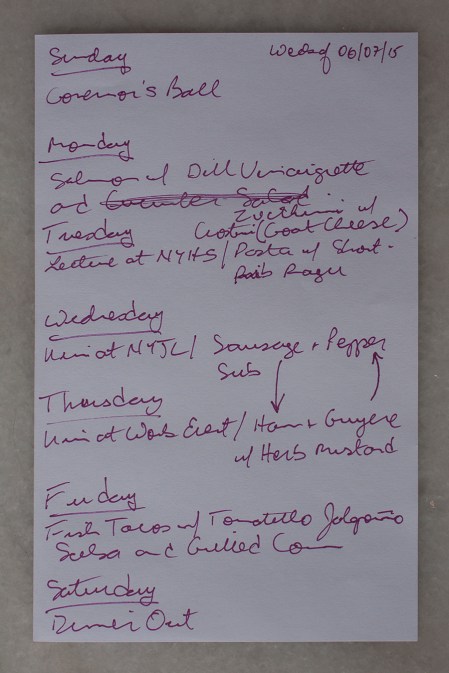 Sunday Week of 06/07/15
Governor's Ball
Monday
Salmon w/ Dill Vinaigrette
and Cucumber Salad
Zucchini w/
Tuesday Crostini (Goat Cheese)
Lecture at NYHS / Pasta w/ Short-
Rib Ragu
Wednesday
at NYJL / Sausage + Pepper
Sub
Thursday
at Work Event / Ham + Gruyere
w/ Herb Mustard
Friday
Fish Tacos w/ Tomatillo Jalapeño
Salsa and Grilled Corn
Saturday
Dinner Out